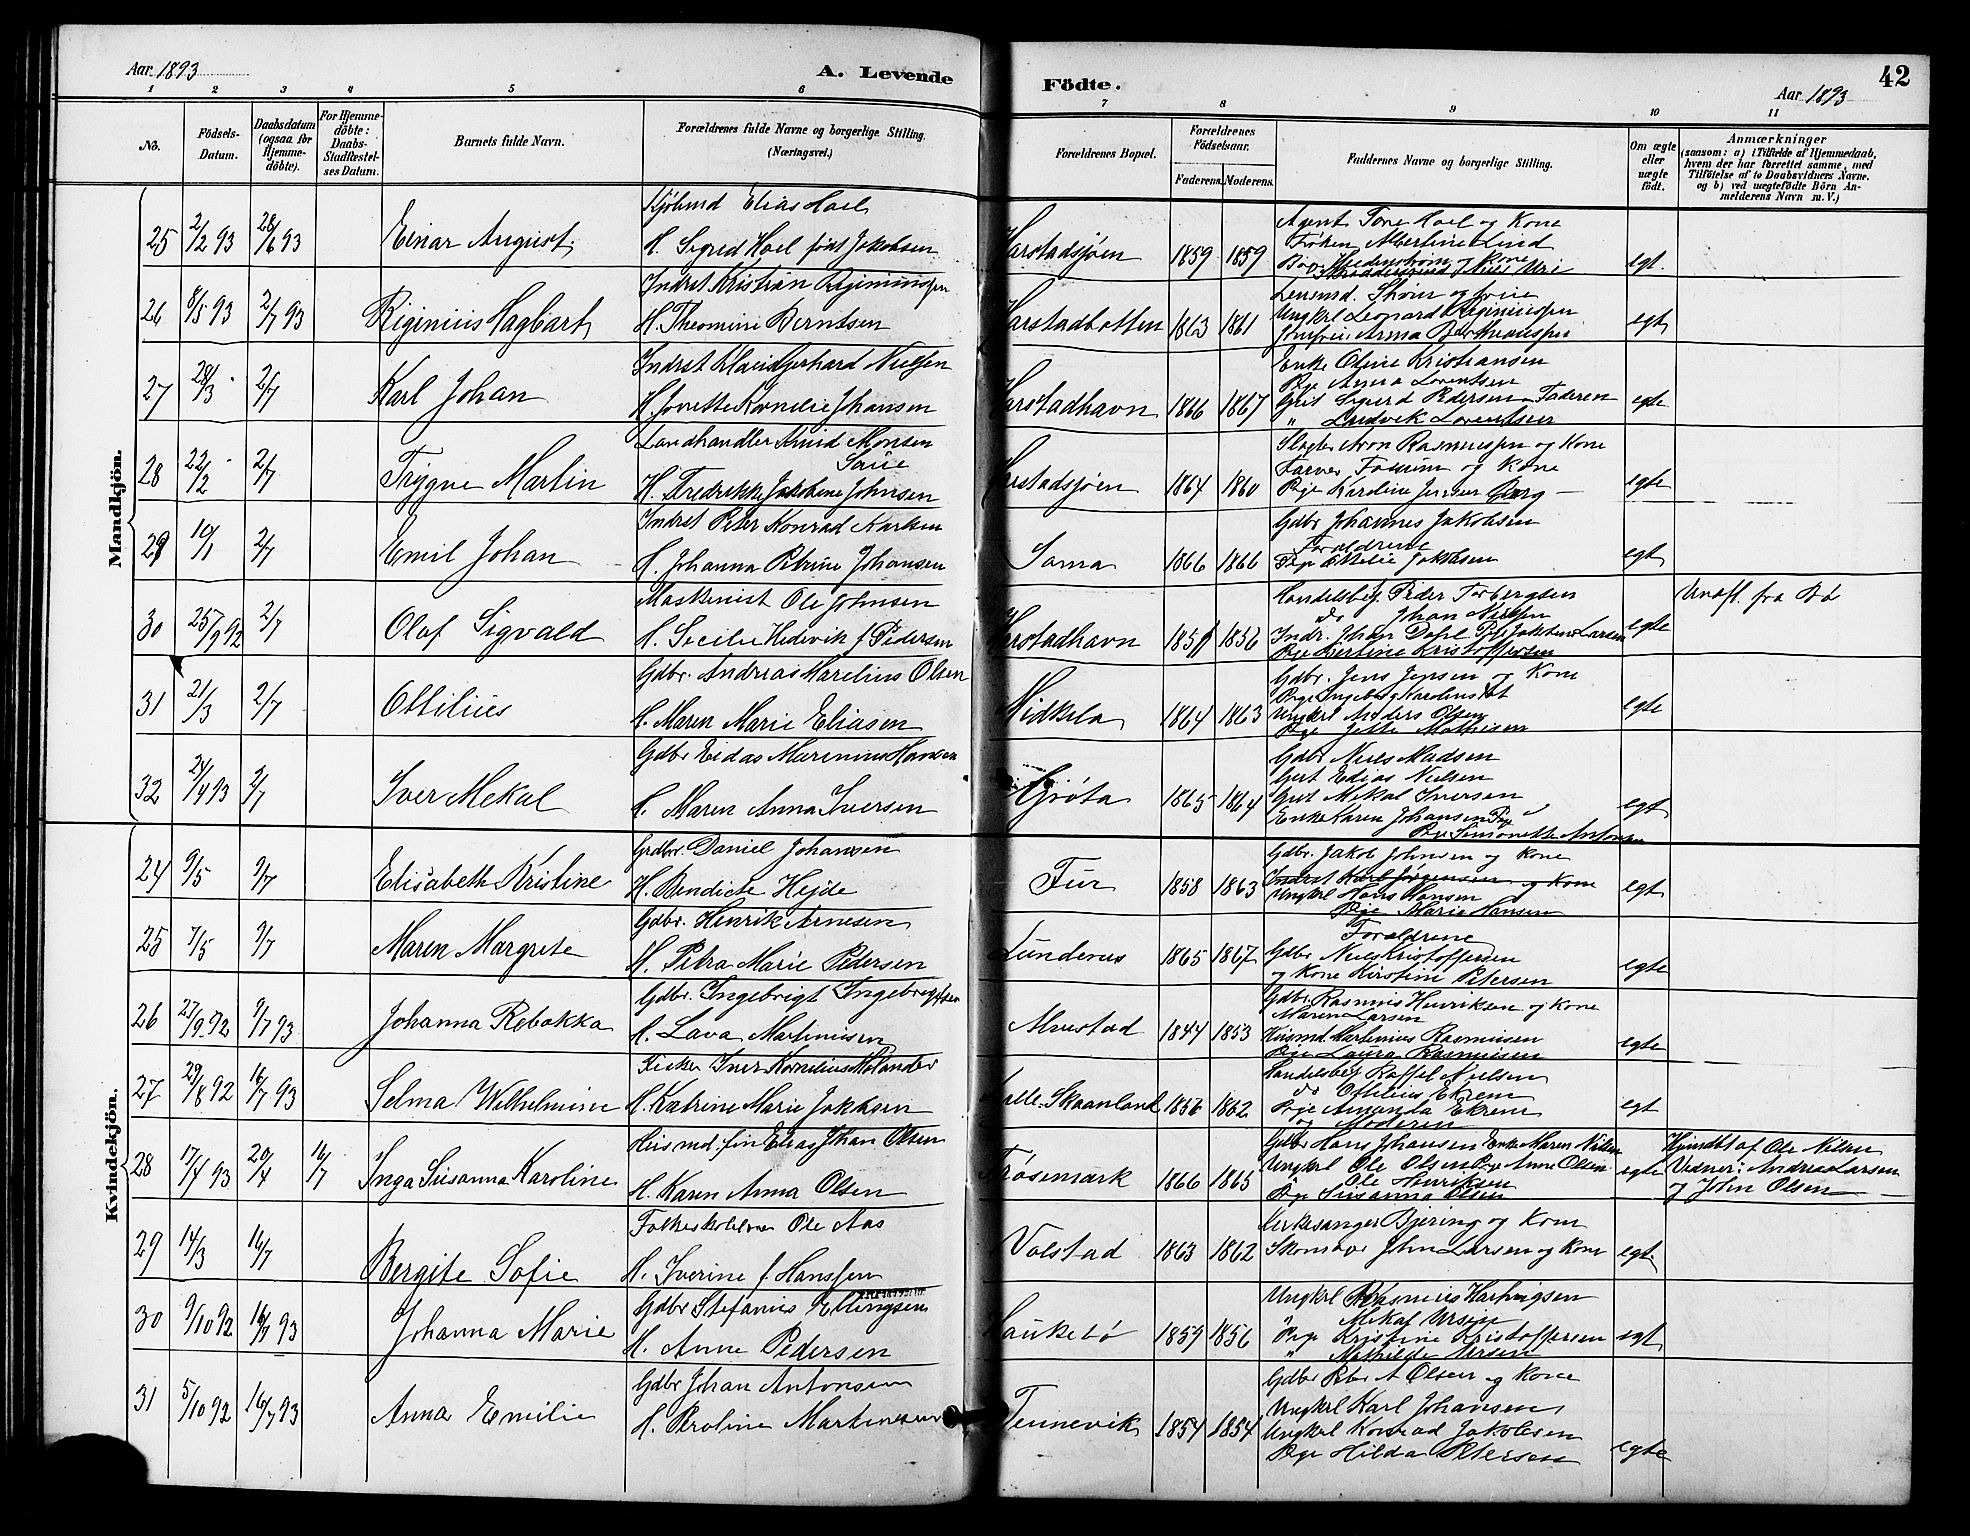 Aar 1893
A. Levende
Födte.
Aar 1893
42
1 2 3 4 5 6 7 8 9 10 11
No.
Födsels-Datum.
Daabsdatum (ogsaa for Hjemmedöbte).
For Hjemmedöbte: Daabs-Stadfæstelses Datum.
Barnets fulde Navn.
Forældrenes fulde Navne og borgerlige Stilling. (Næringsvei.)
Forældrenes Bopæl.
Forældrenes Födselsaar.
Faderens. Moderens.
Faddernes Navne og borgerlige Stilling.
Om ægte eller uægte födt.
Anmærkninger
(saasom: a) i Tilfælde af Hjemmedaab, hvem der har forrettet samme, med Tilföielse af to Daabsvidners Navne. og b) ved uægtefödte Börn Anmelderens Navn m. V.)
Mandkjön.
25 2/2 93 28/6 93 Einar August
Elias Hoel
H. Sigrid Hoel født Jakobsen
Harstadsjøen 1859 1859
Agent Tore Hoel og Kone
Frøken Albertine Lind
egt.
26 8/5 93 2/7 93 Riginius Hagbart
Indrst Kristian Riginiussen
H. Theomine Berntsen
Harstadbotten 1863 1861
Ungkrl Leonard Riginiussen
egt
27 28/3 2/7 Karl Johan
H. Jorette Kornelie Johansen
Harstadhavn 1866 1867
Enke Oline Kristiansen
Pige Anna Lorentsen
Gift Sigurd Pedersen Faderen
" Ludvik Lorentsen
egte
28 22/2 2/7 Trygve Martin
Landhandler Knud Monsen
H. Fredrikke Jakobine Johnsen
Harstadsjøen 1864 1860
Slagter Aron Rasmussen og Kone
Farver og Kone
egte
29 10/1 2/7 Emil Johan
Indrst Peter Konrad Karlsen
H. Johanna Petrine Johansen
Sama 1866 1866
Gdbr Johannes Jakobsen
Forældrene
Pige Ottilie Jakobsen
egt
30 25/9 92 2/7 Olaf Sigvald
Maskinist Ole Johnsen
H. Secilie Hedevik f. Pedersen
Harstadhavn 1851 1856
Handelsbetj. Peder Torbergsen
do Johan Nielsen
Indr. Johan Dahl Pige Jakobine Larsen
Pige Bertine Kristoffersen
egte
31 21/3 2/7 Ottilius
Gdbr. Andreas Marelius Olsen
H. Maren Marie Eliasen
Nidkela 1864 1863
Gdbr. Jens Jensen og Kone
Ungkrl Anders Olsen
Pige Jette Mathisen
egte
32 24/4 93 2/7 Iver Mekal
Gdbr Eidas Marinius Hansen
H. Maren Anna Iversen
Grøta 1865 1864
Gdbr Niels Madsen
Gift Edias Nielsen
Gift Mekal Iversen
Enke Karen Johansen
Pige Simonette Antonsen
egt
Kvindekjön.
24 9/5 9/7 Elisabeth Kristine
Grdbr. Daniel Johansen
H. Bendicte Hejde
Fur 1858 1863
Gdbr. Jakob Johnsen og Kone
Indrst Karl Jørgensen og Kone
Ungkrl Hans Hansen
Pige Marie Hansen
egt
25 7/5 9/7 Maren Margrete
Gdbr. Henrik Arnesen
H. Petra Marie Pedersen
Lundenes 1865 1867
Forældrene
Gdbr Niels Kristoffersen
og Kone Kirstine Petersen
egte
26 27/9 92 9/7 93 Johanna Rebakka
Gdbr. Ingebrigt Ingebrigtsen
H. Lava Martinusen
Alvestad 1844 1853
Gdbr Rasmus Henriksen og Kone
Maren Larsen
Husmd. Martinius Rasmussen
Pige Laura Rasmussen
egte
27 29/8 92 16/7 93 Selma Wilhelmine
Fisker Iver Kornelius Molander
H. Katrine Marie Jakobsen
Skaanland 1856 1862
Handelsbetj Raffel Nielsen
do Ottilius Ekrem
Pige Amanda Ekrem
og Moderen
egt
28 17/4 93 20/4 16/7 Inga Susanna Karoline
Husmd. fin Elias Johan Olsen
H. Karen Anna Olsen
Trøsemark 1866 1865
Gdbr Hans Johansen Enke Maren Nilsen
Ungkrl Ole Olsen Pige Anne Olsen
Ole Henriksen
Pige Susanna Olsen
egte
Hjemdbt af Ole Nilsen
Vidner: Andreas Larsen
og John Olsen
29 14/3 16/7 Bergite Sofie
Ole Aas
H. Iverine f. Hanssen
Volstad 1863 1862
Kirkesanger Bjering og Kone
Skomager John Larsen og Kone
egte
30 9/10 92 16/7 93 Johanna Marie
Gdbr Stefanus Ellingsen
H. Anne Pedersen
Haukebø 1859 1856
Ungkrl Rasmus Hartvigsen
" Mekal Ursen
Pige Kristine Kristoffersen
" Mathilde Ursen
egt
31 5/10 92 16/7 93 Anna Emilie
Gdbr Johan Antonsen
H. Paroline Martinussen
Tennevik 1854 1854
Gdbr Peter A Olsen og Kone
Ungkrl Karl Johansen
Ungkrl Konrad Jakobsen
Pige Hilda Petersen
egte